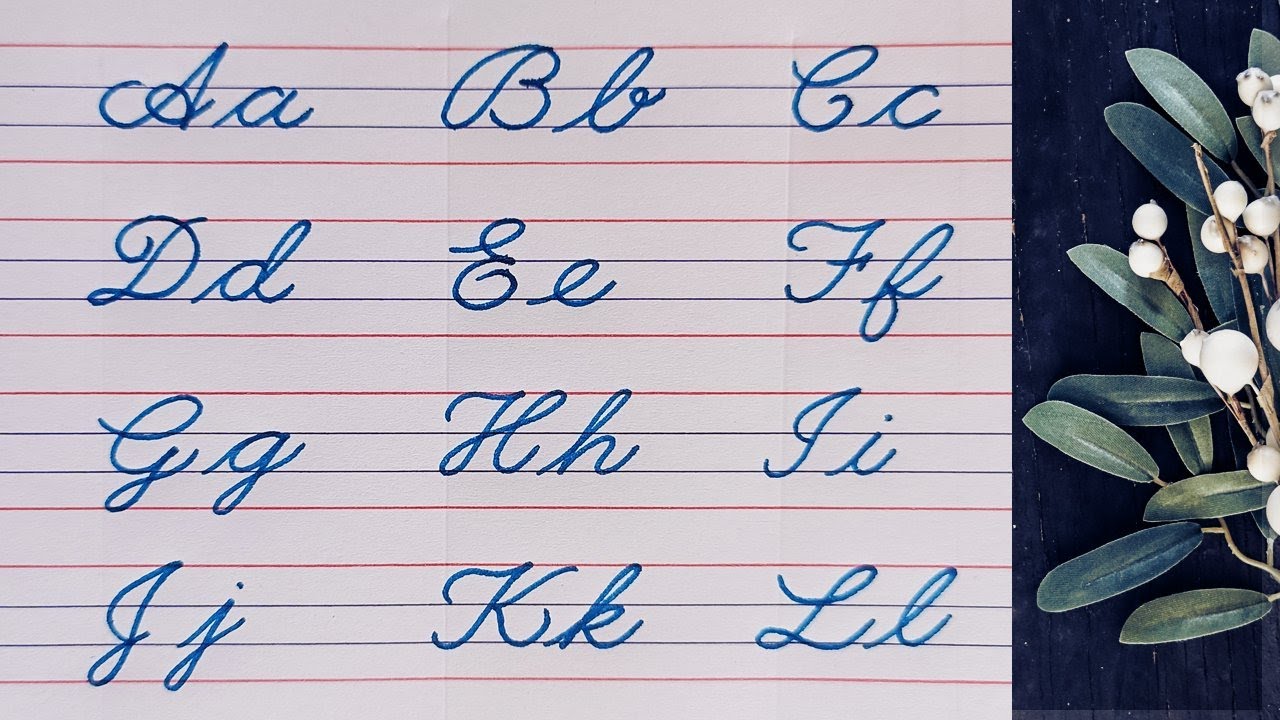 Aa Bb Cc
Dd Ee Ff
Gg Hh Ii
Jj Kk Ll